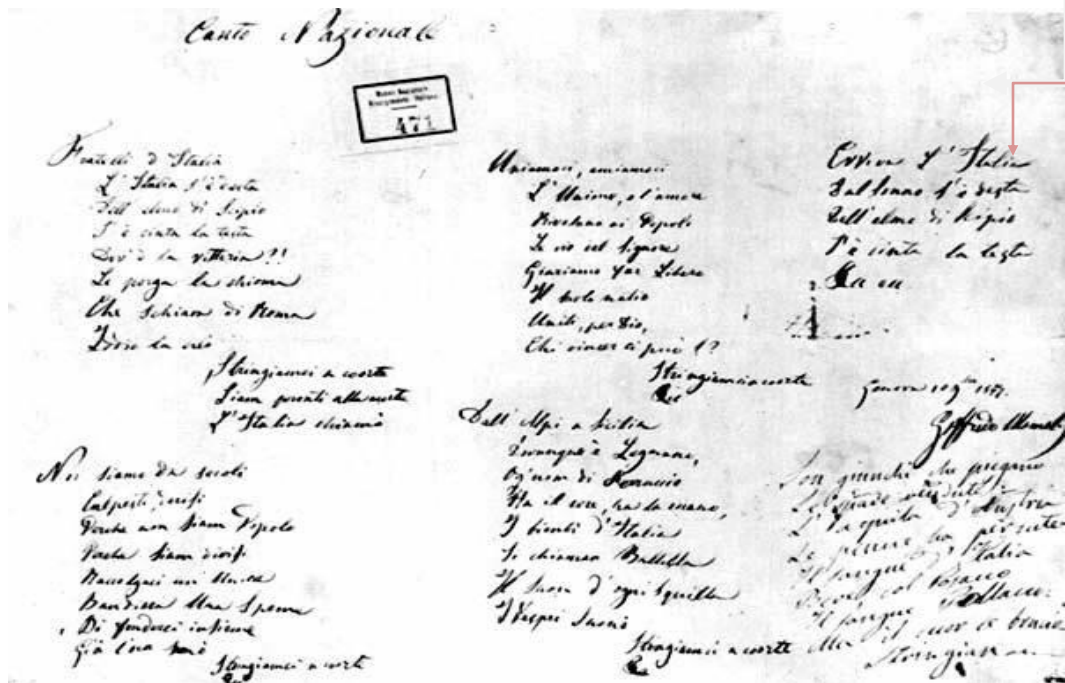 Canto Nazionale
Museo Nazionale
Risorgimento Italiano
471
Fratelli d'Italia
L'Italia s'è desta
Dell'elmo di Scipio
S'è cinta la testa
Dov'è la vittoria?!
Le porga la chioma
Che schiava di Roma
Iddio la creò
Stringiamci a coorte
Siam pronti alla morte
L'Italia chiamò
Noi siamo da secoli
Calpesti, derisi
Perché non siam Popolo
Perché siam divisi
Raccolgaci un'Unica
Bandiera Una Speme
Di fonderci insieme
Già l'ora suonò
Stringiamci a coorte
Uniamoci, amiamoci
L'Unione, e l'amore
Rivelano ai Popoli
Le vie del Signore
Giuriamo far Libero
Il suolo natio
Uniti, per Dio,
Chi vincer ci può!?
Stringiamci a coorte
Dall'Alpi a Sicilia
Dovunque è Legnano,
Ogn'uom di Ferruccio
Ha il core, ha la mano,
I bimbi d'Italia
Si chiaman Balilla
Il suon d'ogni squilla
I Vespri suonò
Stringiamci a coorte
Evviva l'Italia
Dal sonno s'è desta
Dell'elmo di Scipio
S'è cinta la testa
Genova 1847.
Goffredo Mameli
Son giunchi che piegano
Le spade vendute
L'Aquila d'Austria
Le penne ha perdute
Il sangue d'Italia
Bevé col Cosacco
Il sangue Polacco
Ma il cuor le bruciò
Stringiam